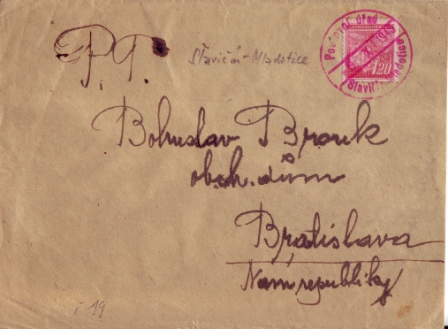 P. T.
Stavičín-Mladotice
Poštovní úřad
1.20
Bohuslav Brouk
obch. dům
Bratislava
Nám republiky